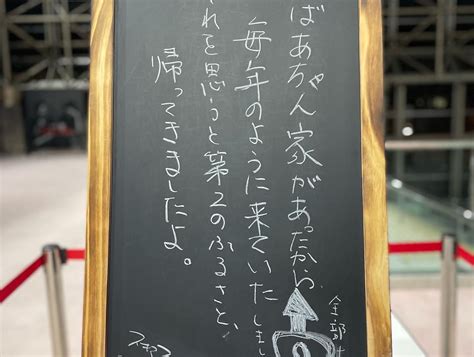 ばあちゃん家があったから、
毎年のように来ていたしまし
れを思うと第2のふるさと、
帰ってきましたよ。
全部